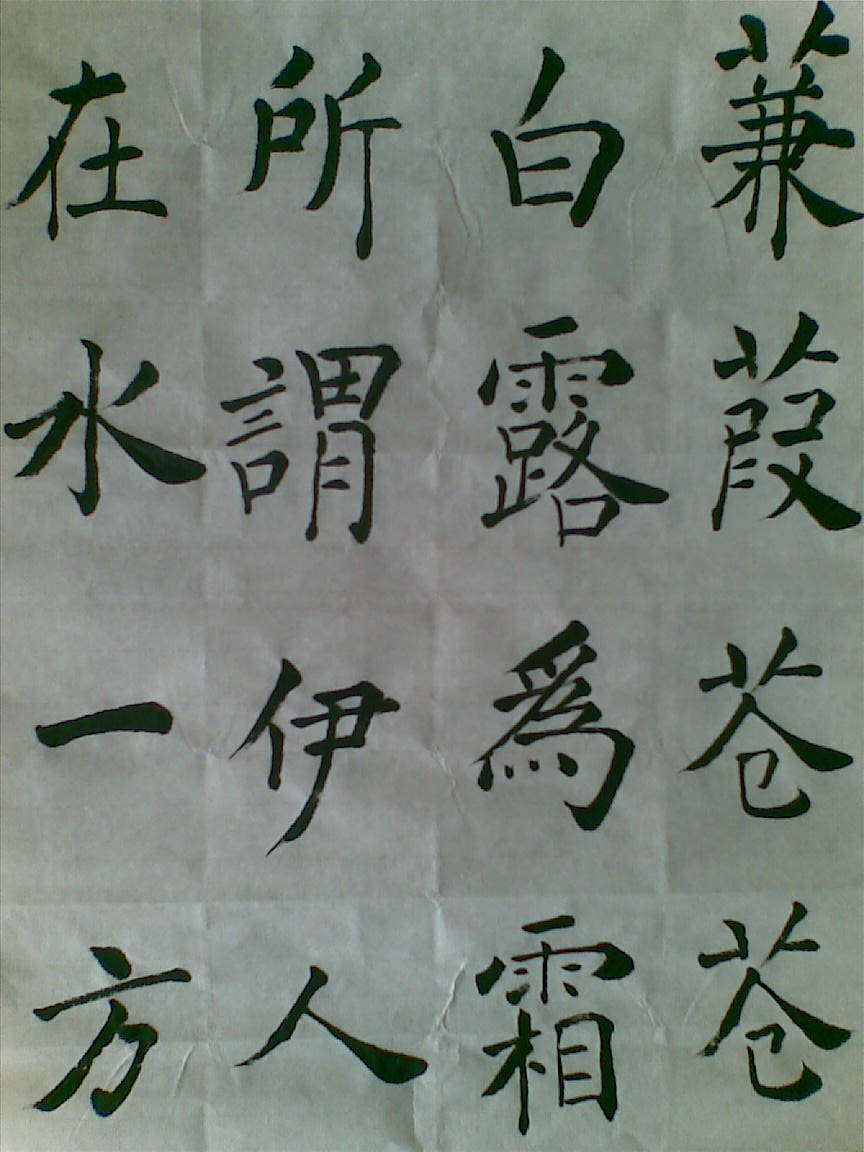 蒹葭苍苍
白露爲霜
所謂伊人
在水一方